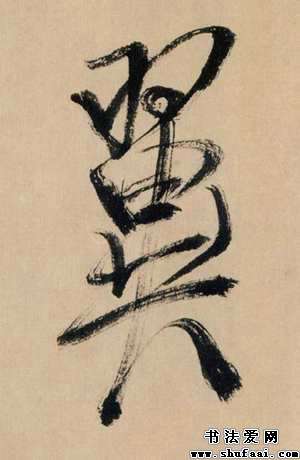 翼
书法爱网
www.shufaai.com